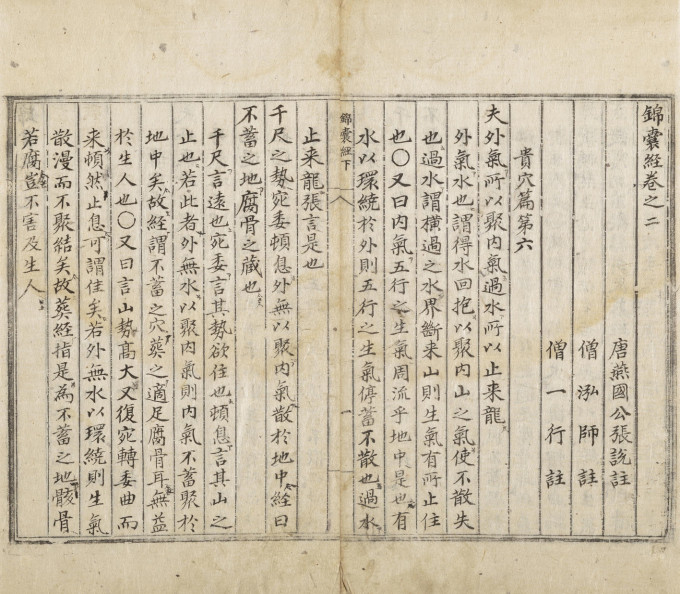 錦囊經卷之二
唐燕國公張說註
僧泓師註
僧一行註
貴穴篇第六
夫外氣所以聚內氣過水所以止来龍
外氣水也謂得水回抱以聚內山之氣使不散失
也過水謂橫過之水界斷来山則生氣有所止住
也〇又曰內氣五行之生氣周流乎地中是也有
水以環繞於外則五行之生氣停蓄不散也過水
錦囊經下
一
止来龍張言是也
千尺之勢宛委頓息外無以聚內氣散於地中經曰
不蓄之地腐骨之藏也
千尺言遠也宛委言其勢欲住也頓息言其山之
止也若此者外無水以聚內氣則內氣不蓄聚於
地中矣故經謂不蓄之穴葬之適足腐骨耳無益
於生人也〇又曰言山勢高大又復宛轉委曲而
来頓然止息可謂住矣若外無水以環繞則生氣
散漫而不聚結矣故葬經指是為不蓄之地骸骨
若腐豈不害及生人